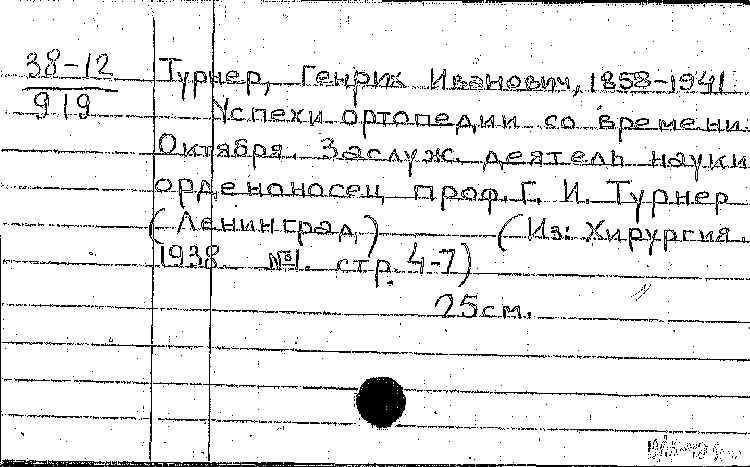 38-12
919
Турнер, Генрик Иванович, 1858-1941
Успехи ортопедии со времени
Октября. Заслуж. деятель науки
орденоносец проф. Г. И. Турнер
(Ленинград) (Из: Хирургия.
1938 №1. стр. 4-7)
25см.